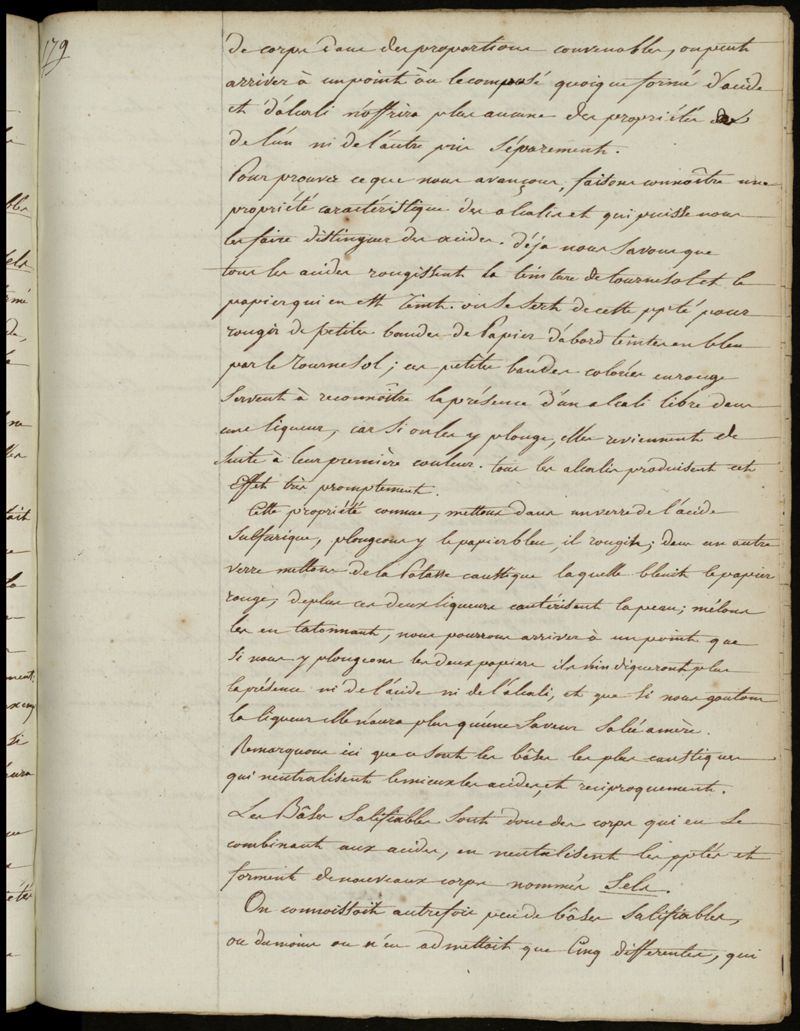 179
de corps dans des proportions convenables, on peut
arriver à un point où le composé quoique formé d'acide
et d'alcali n'offrira plus aucune des propriétés
de l'un ni de l'autre pris séparement.
Pour prouver ce que nous avançons, faisons connoître une
propriété caractéristique des alcalis et qui puisse nous
les faire distinguer des acides. déja nous savons que
tous les acides rougissent la teinture de tournesol et le
papier qui en est teint. on se sert de cette ppté pour
rougir de petites bandes de Papier d'abord teintes en bleu
par le Tournesol; ces petites bandes colorées en rouge
servent à reconnoître la présence d'un alcali libre dans
une liqueur, car si on les y plonge, elles reviennent de
suite à leur première couleur. tous les alcalis produisent cet
Effet très promptement.
Cette propriété connue, mettons dans un verre de l'acide
sulfurique, plongeons y le papier bleu, il rougit; dans un autre
verre mettons de la Potasse caustique laquelle bleuit le papier
rouge; de plus ces deux liqueurs cautérisent la peau; mélons
les en tatonnant, nous pourrons arriver à un point que
si nous y plongeons les deux papiers ils n'indiqueront plus
la présence ni de l'acide ni de l'alcali, et que si nous goutons
la liqueur elle n'aura plus qu'une saveur salée amère.
Remarquons ici que ce sont les bâses les plus caustiques
qui neutralisent le mieux les acides, et reciproquement.
Les Bâses salifiables sont donc des corps qui en se
combinant aux acides, en neutralisent les pptés et
forment de nouveaux corps nommés Sels.
On connoissoit autrefois peu de bâses salifiables,
ou du moins on n'en admettoit que Cinq differentes, qui